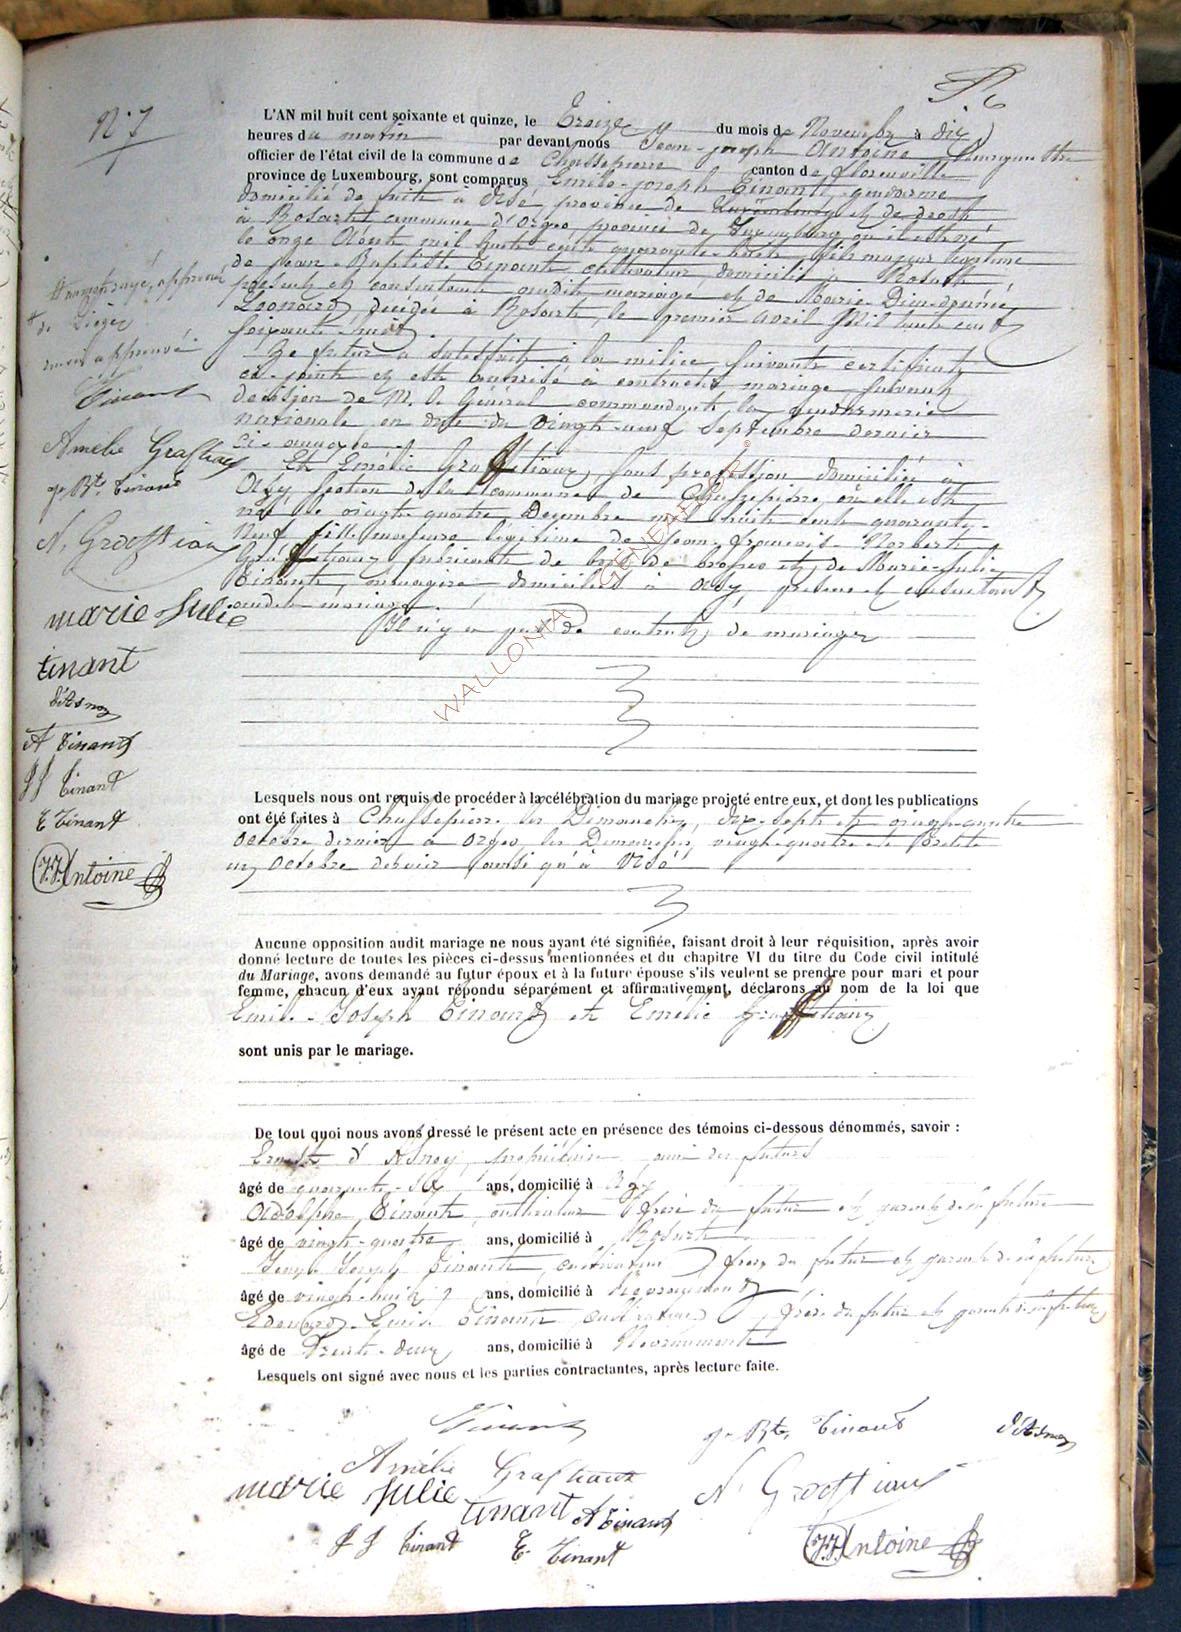 N° 7
L'AN mil huit cent soixante et quinze, le Treize du mois de Novembre à dix
heures du matin par devant nous Jean-Joseph Antoine Bourgmestre
officier de l'état civil de la commune de Chassepierre canton de Florenville
province de Luxembourg, sont comparus Emile-Joseph Tinant gendarme
domicilié de fait à Visé province de Luxembourg et de droit
à Rosart commune d'Orgeo province de Luxembourg où il est né
le onze Août mil huit cent quarante-huit, fils majeur légitime
de Jean-Baptiste Tinant cultivateur domicilié à Rosart
présent et consentant audit mariage et de Marie Dieu-donnée
Léonard, décédée à Rosart, le premier avril Mil huit cent
soixante-huit
Le futur a satisfait à la milice suivant certificat
ci-joint et est autorisé à contracter mariage suivant
décision de M. le Général commandant la gendarmerie
nationale en date du vingt-neuf Septembre dernier
ci-annexée.
Et Emélie Graftiaux, sans profession domiciliée à
Azy section de la commune de Chassepierre où elle est
née le vingt-quatre Décembre mil huit cent quarante-
neuf fille majeure légitime de Jean-François-Norbert
Graftiaux fabricant de de et de Marie-Julie
Tinant, ménagère domiciliés à Azy, présents et consentant
audit mariage.
Il n'y a pas de contrat de mariage
mot rayé, approuvé
de Liège
approuvé
Tinant
Amélie Graftiaux
J Bte Tinant
N. Graftiaux
marie Julie
tinant
d'Asnoy
A Tinant
J J Tinant
E Tinant
J.J. Antoine
WALLONIA GENEALOGIE
Lesquels nous ont requis de procéder à la célébration du mariage projeté entre eux, et dont les publications
ont été faites à Chassepierre les Dimanches, dix-sept et vingt-quatre
Octobre dernier à Orgeo, les Dimanches vingt-quatre et trente
un Octobre dernier ainsi qu'à Visé
Aucune opposition audit mariage ne nous ayant été signifiée, faisant droit à leur réquisition, après avoir
donné lecture de toutes les pièces ci-dessus mentionnées et du chapitre VI du titre du Code civil intitulé
du Mariage, avons demandé au futur époux et à la future épouse s'ils veulent se prendre pour mari et pour
femme, chacun d'eux ayant répondu séparément et affirmativement, déclarons au nom de la loi que
Emile-Joseph Tinant et Emélie Graftiaux
sont unis par le mariage.
De tout quoi nous avons dressé le présent acte en présence des témoins ci-dessous dénommés, savoir :
Ernest d'Asnoy, propriétaire ami des futurs
âgé de quarante-six ans, domicilié à Azy
Adolphe Tinant, cultivateur frère du futur et parent de la future
âgé de vingt-quatre ans, domicilié à Rosart
Joseph Tinant, cultivateur frère du futur et parent de la future
âgé de vingt-huit ans, domicilié à
Edouard Tinant cultivateur frère du futur et parent de la future
âgé de Trente-deux ans, domicilié à
Lesquels ont signé avec nous et les parties contractantes, après lecture faite.
Tinant
J Bte. Tinant
d'Asnoy
Amélie Graftiaux
marie Julie tinant
N Graftiaux
A Tinant
J J Tinant
E Tinant
J.J. Antoine